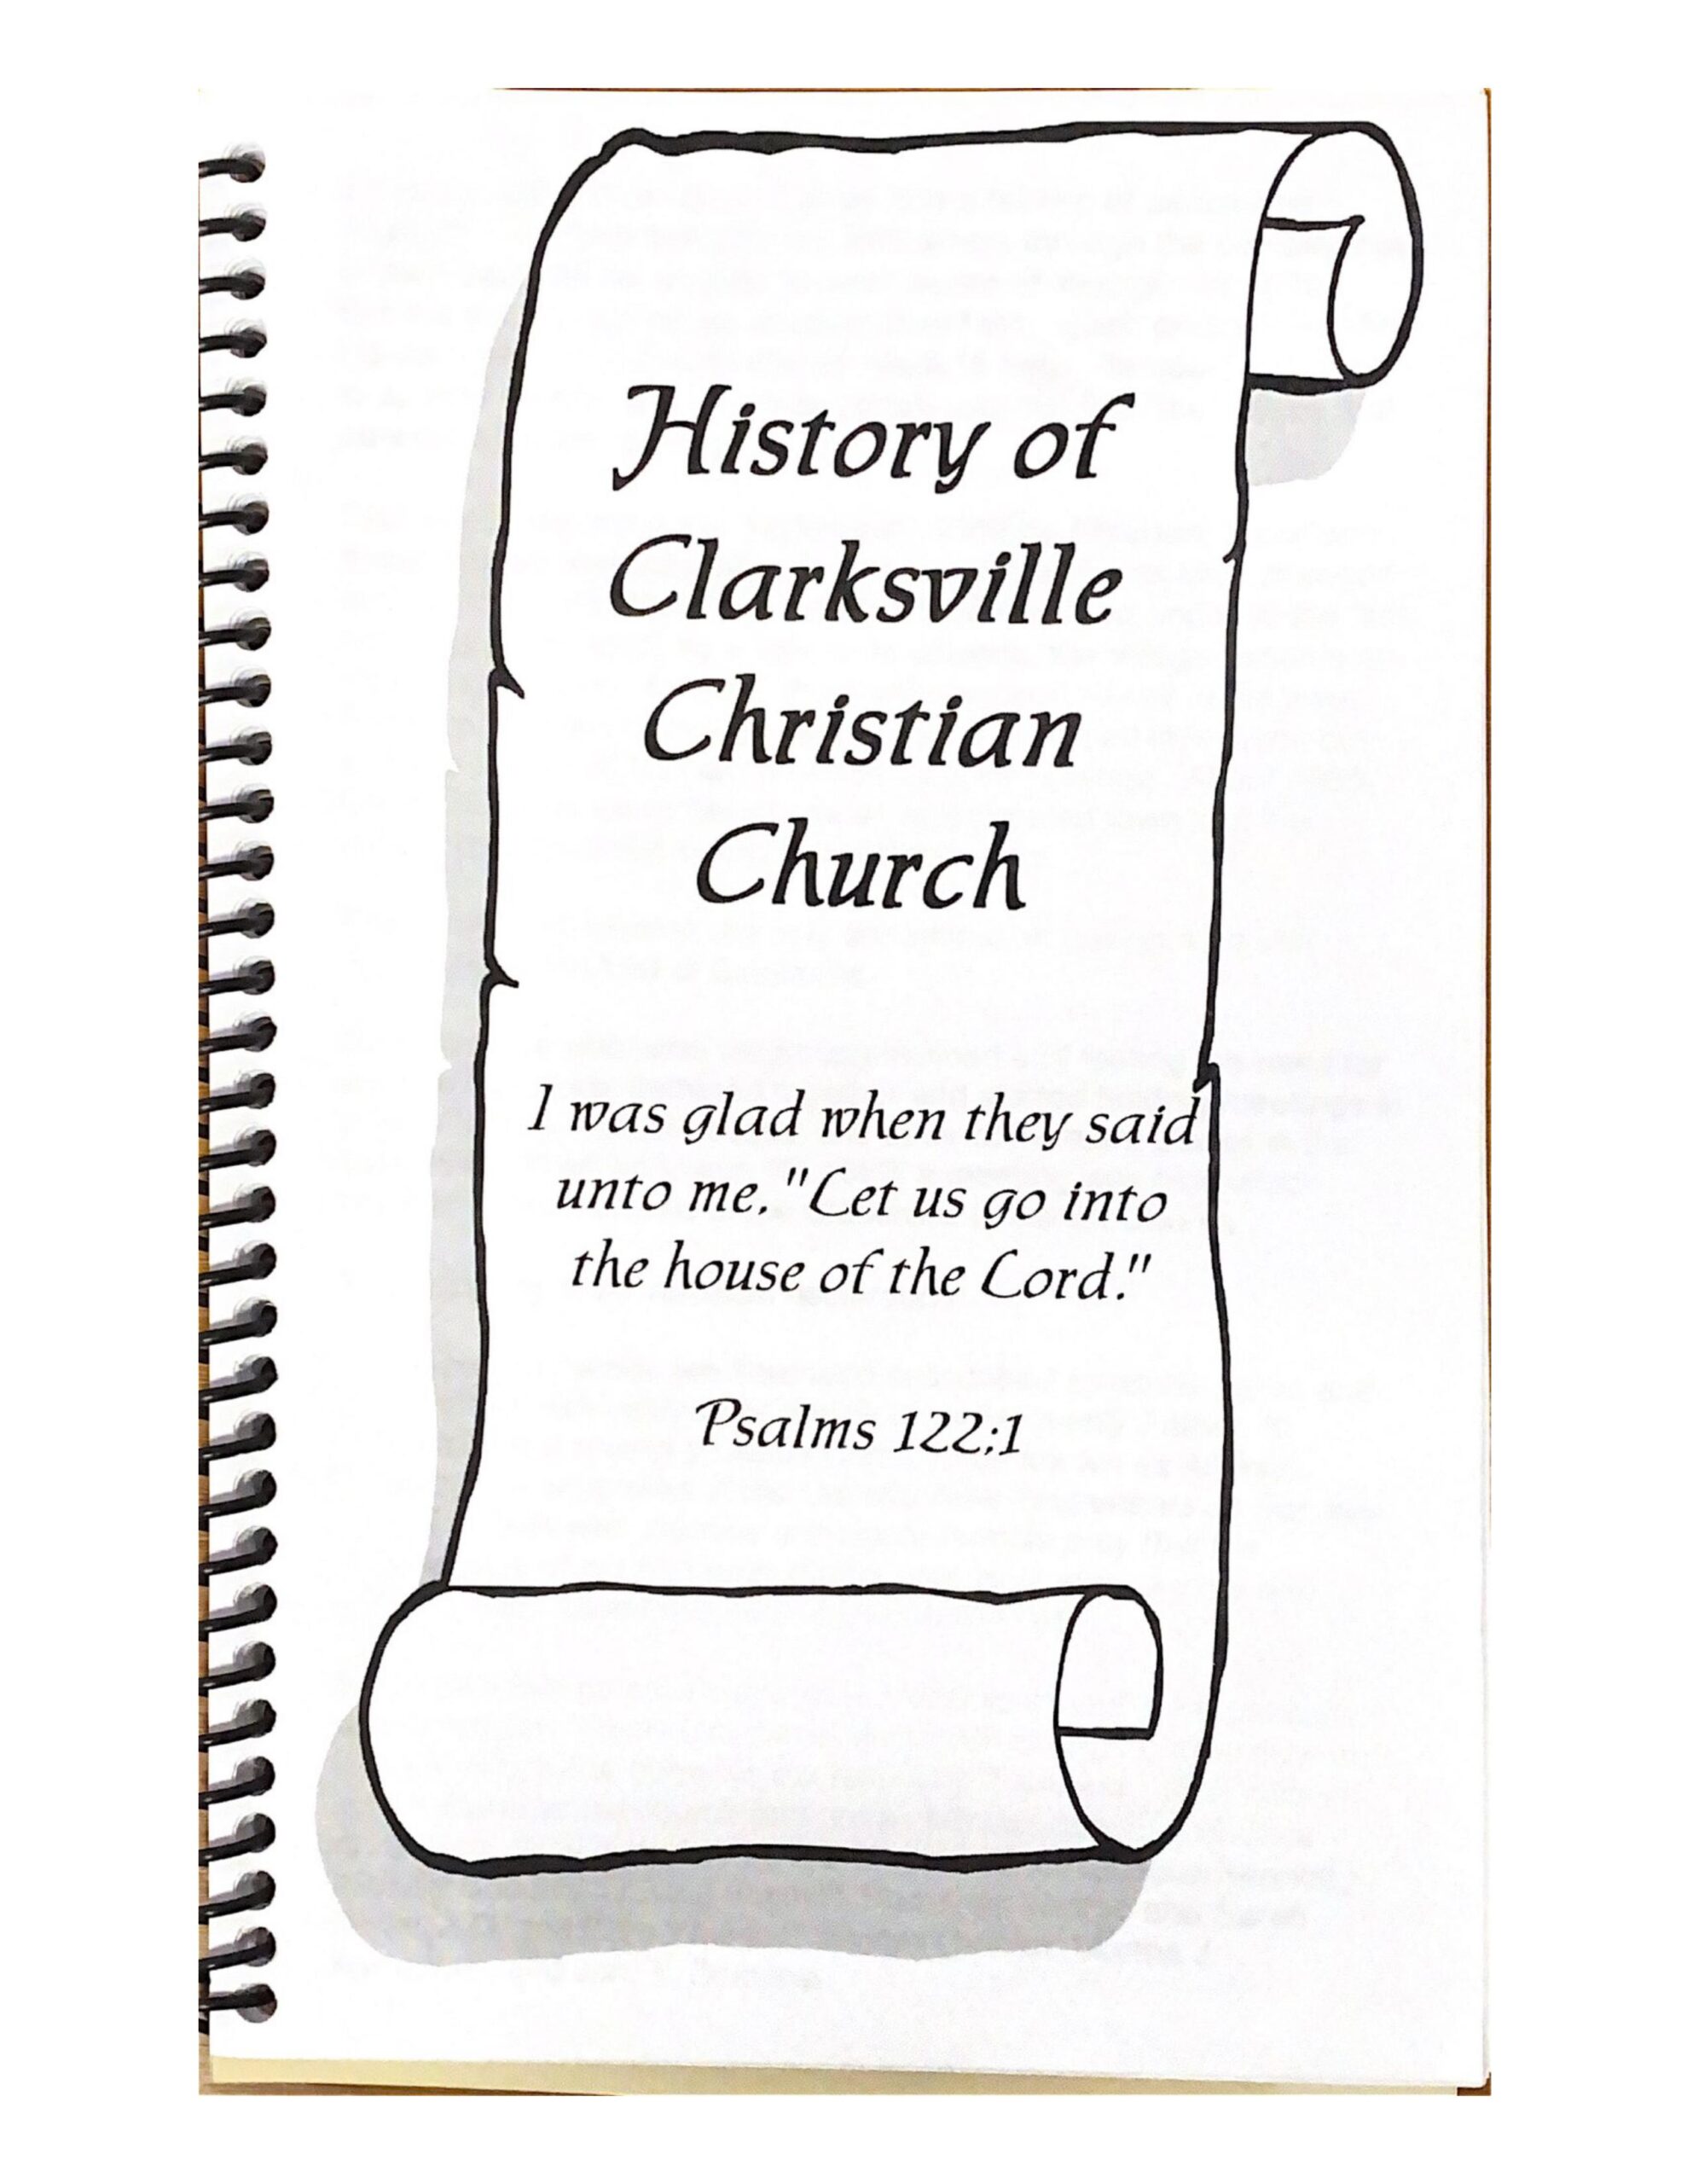 History of
Clarksville
Christian
Church
I was glad when they said
unto me, "Let us go into
the house of the Lord."
Psalms 122:1